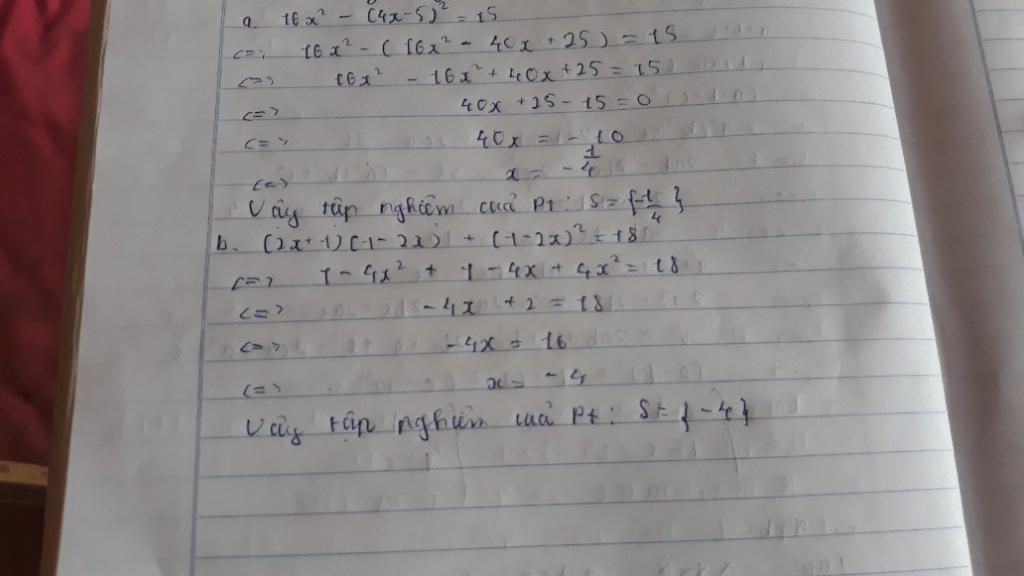 a. 16x² - (4x-5)² = 15
<=> 16x² - (16x² - 40x + 25) = 15
<=> 16x² - 16x² + 40x + 25 = 15
<=> 40x + 25 - 15 = 0
<=> 40x = - 10
<=> x = - 1/4
Vậy tập nghiệm của Pt: S = {-1/4}
b. (2x+1)(1-2x) + (1-2x)² = 18
<=> 1 - 4x² + 1 - 4x + 4x² = 18
<=> -4x + 2 = 18
<=> -4x = 16
<=> x = -4
Vậy tập nghiệm của Pt: S = {-4}